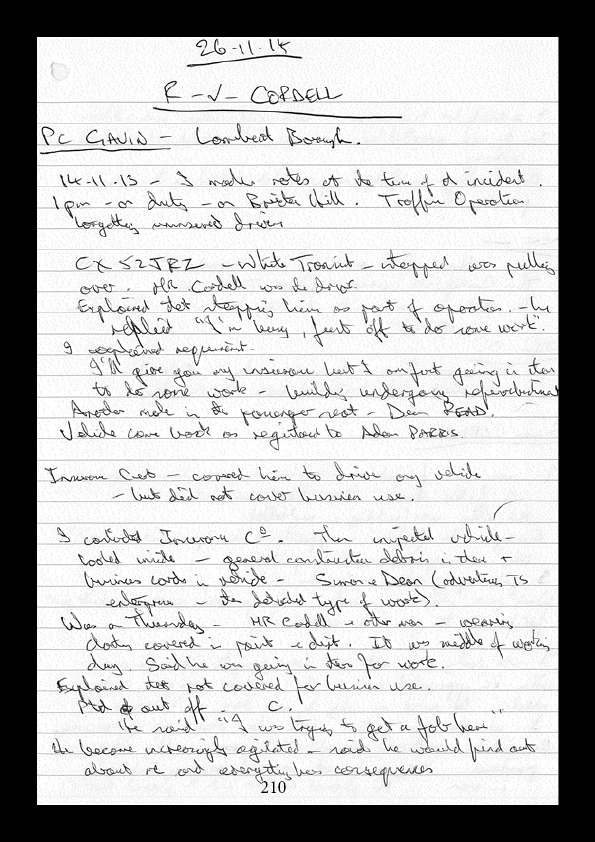 26-11-14
R -v- CORDELL
PC GAVIN - Lambeth Borough.
14-11-13 - I made notes at the time of incident.
1pm - on duty - on Brixton Hill. Traffic Operation
targetting uninsured drivers
CX52JRZ - White Transit - stopped was pulling
over. MR Cordell was the driver.
Explained that stopping him as part of operation. - he
replied "I'm busy, just off to do some work".
I explained requirement.
I'll give you my insurance but I am just going in there
to do some work - building undergoing refurbishment
Another male in the passenger seat - Dean READ.
Vehicle came back as registered to Adam PARRIS.
Insurance Cert - covered him to drive any vehicle
- but did not cover business use.
I contacted Insurance Co. Then inspected vehicle -
looked inside - general construction debris in there +
business cards in vehicle - Simon & Dean (advertising TS
enterprises - the detailed type of work).
Was a Thursday - MR Cordell + other man - wearing
clothes covered in paint & dust. It was middle of working
day. Said he was going in there for work.
Explained that not covered for business use.
out off C.
He said "I was trying to get a job here"
He became increasingly agitated - said he would find out
about me and everything has consequences
210